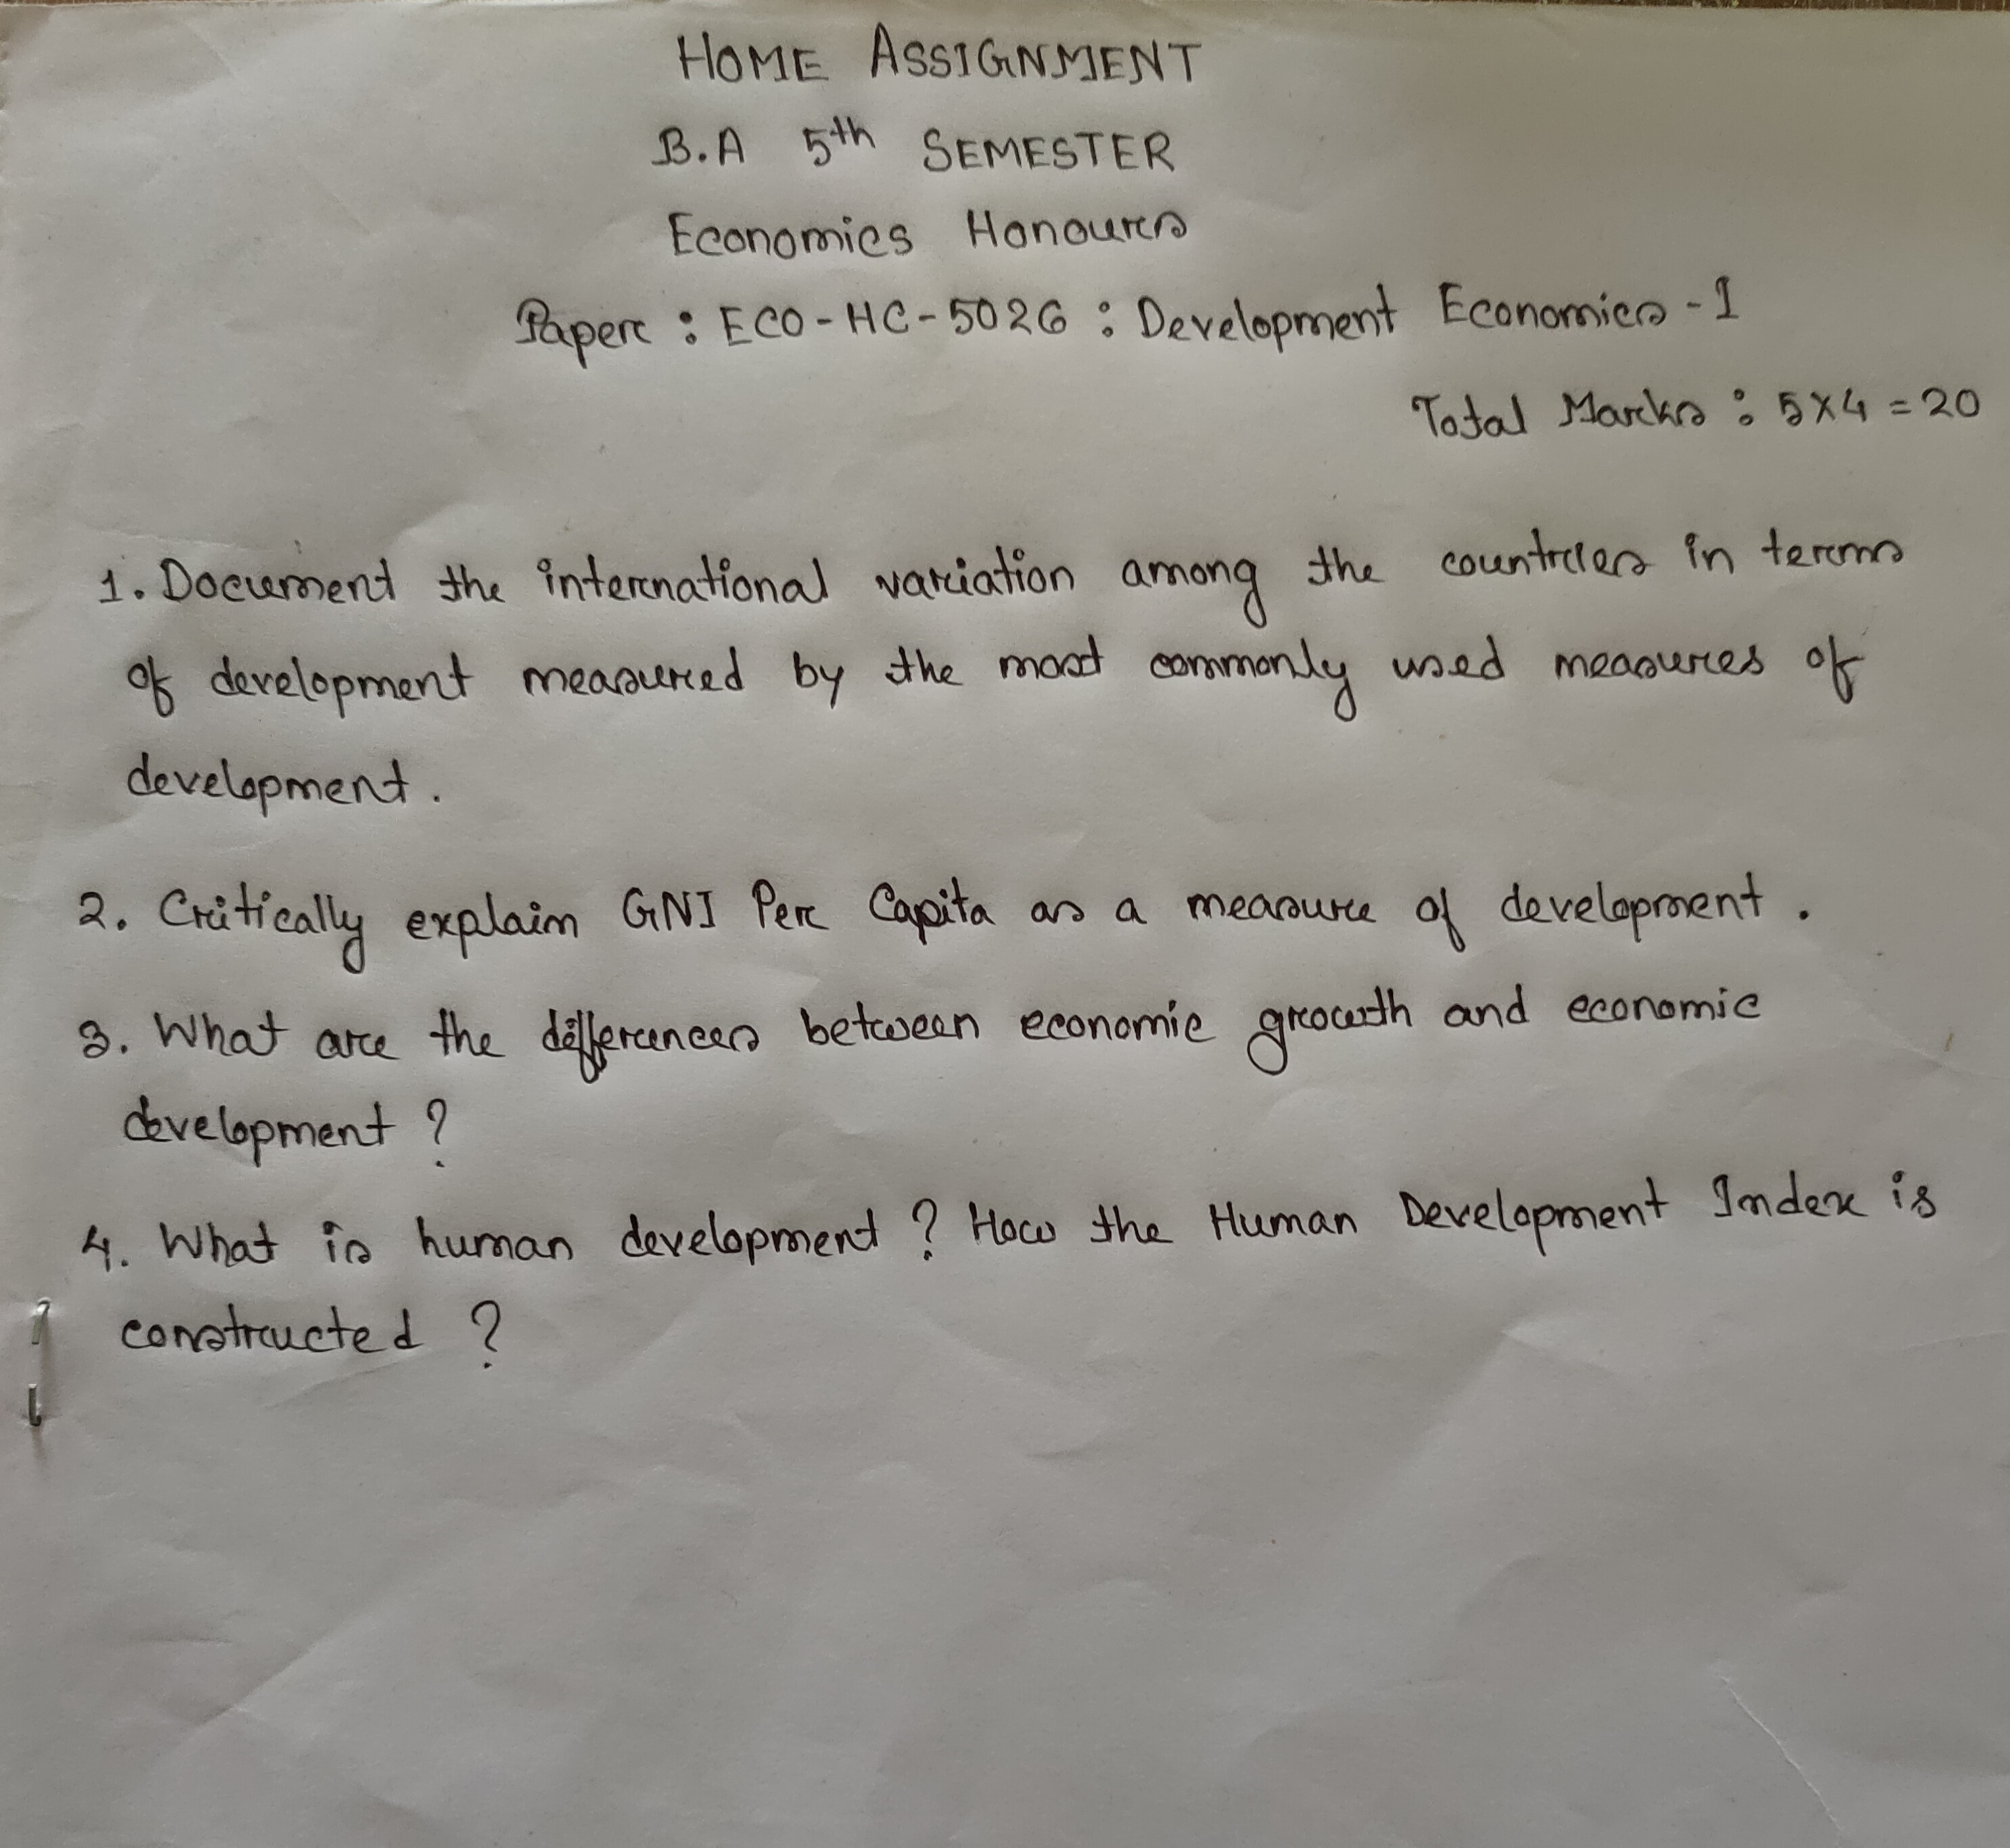 HOME ASSIGNMENT
B.A 5th SEMESTER
Economics Honours
Paper : ECO-HC-5026 : Development Economics - I
Total Marks : 5x4 = 20
1. Document the international variation among the countries in terms
of development measured by the most commonly used measures of
development.
2. Critically explain GNI Per Capita as a measure of development.
3. What are the differences between economic growth and economic
development ?
4. What is human development ? How the Human Development Index is
constructed ?